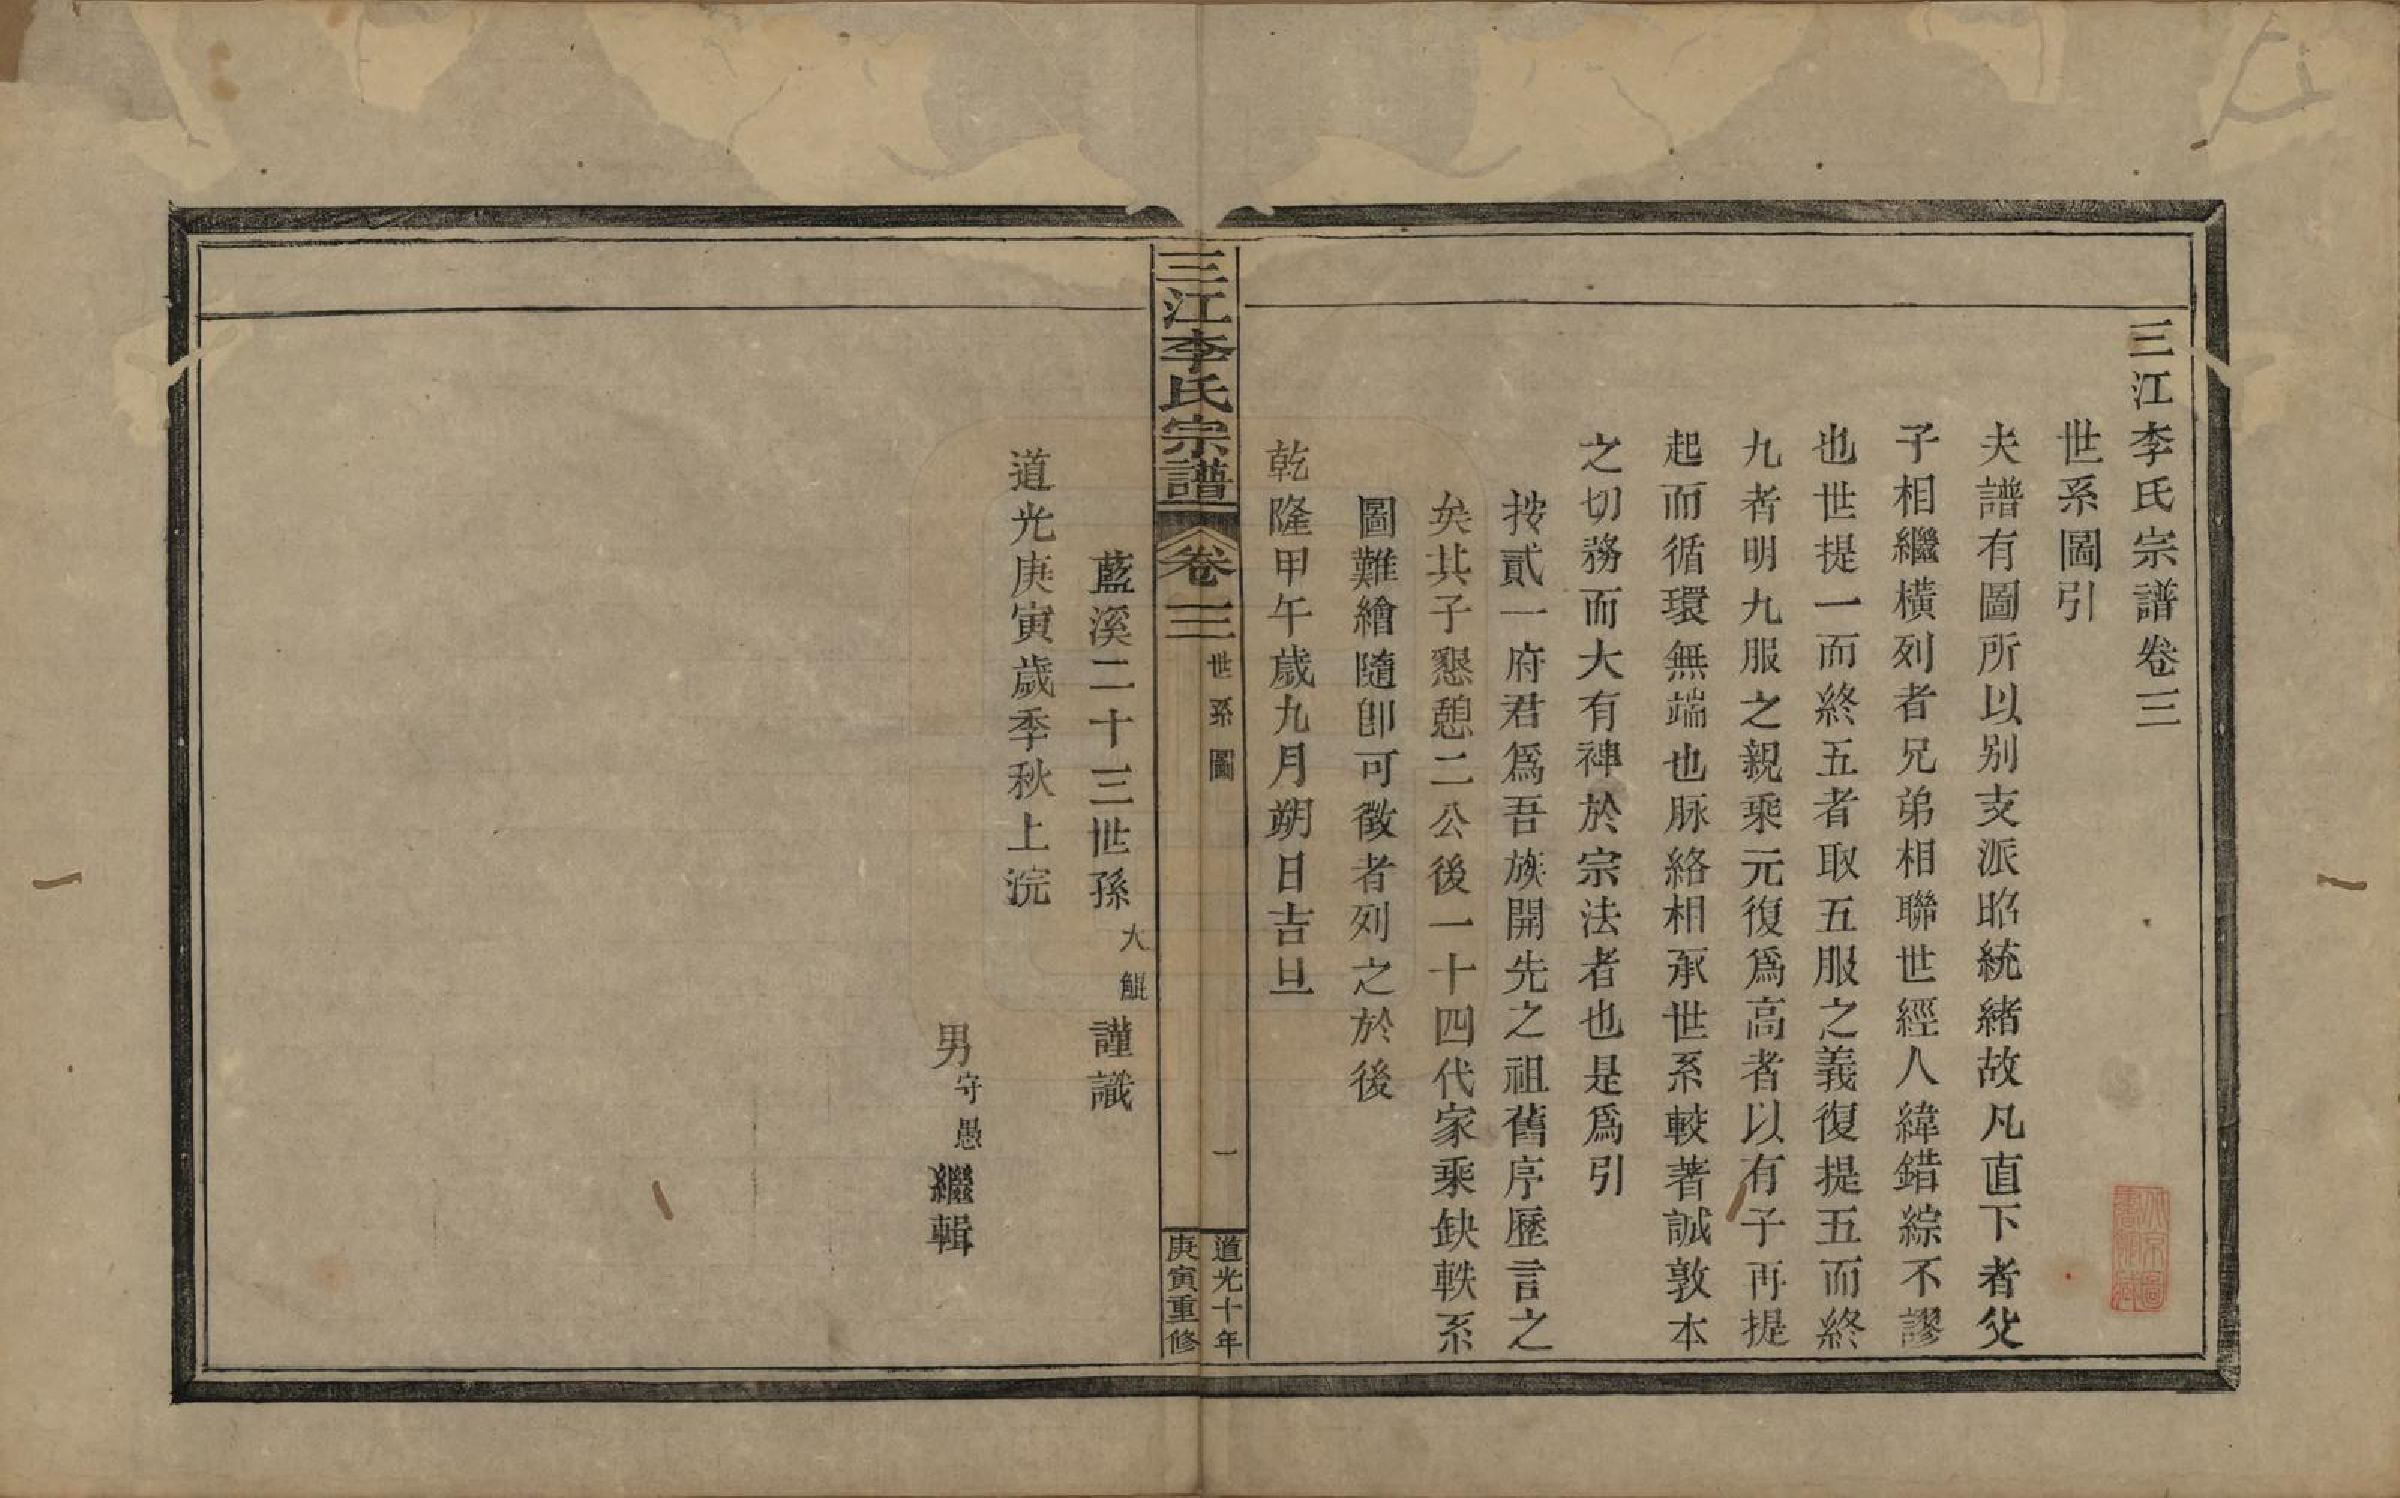 三江李氏宗譜卷三
世系圖引
夫譜有圖所以别支派昭統緒故凡直下者父
子相繼橫列者兄弟相聯世經人緯錯綜不謬
也世提一而終五者取五服之義復提五而終
九者明九服之親乘元復爲高者以有子再提
起而循環無端也脉絡相承世系較著誠敦本
之切務而大有裨於宗法者也是爲引
按貳一府君爲吾族開先之祖舊序歷言之
矣其子懇憩二公後一十四代家乘缺軼系
圖難繪隨卽可徵者列之於後
乾隆甲午歲九月朔日吉旦
三江李氏宗譜
卷三
世系圖
一
道光十年
庚寅重修
藍溪二十三世孫大觀謹識
道光庚寅歲季秋上浣
男守愚繼輯